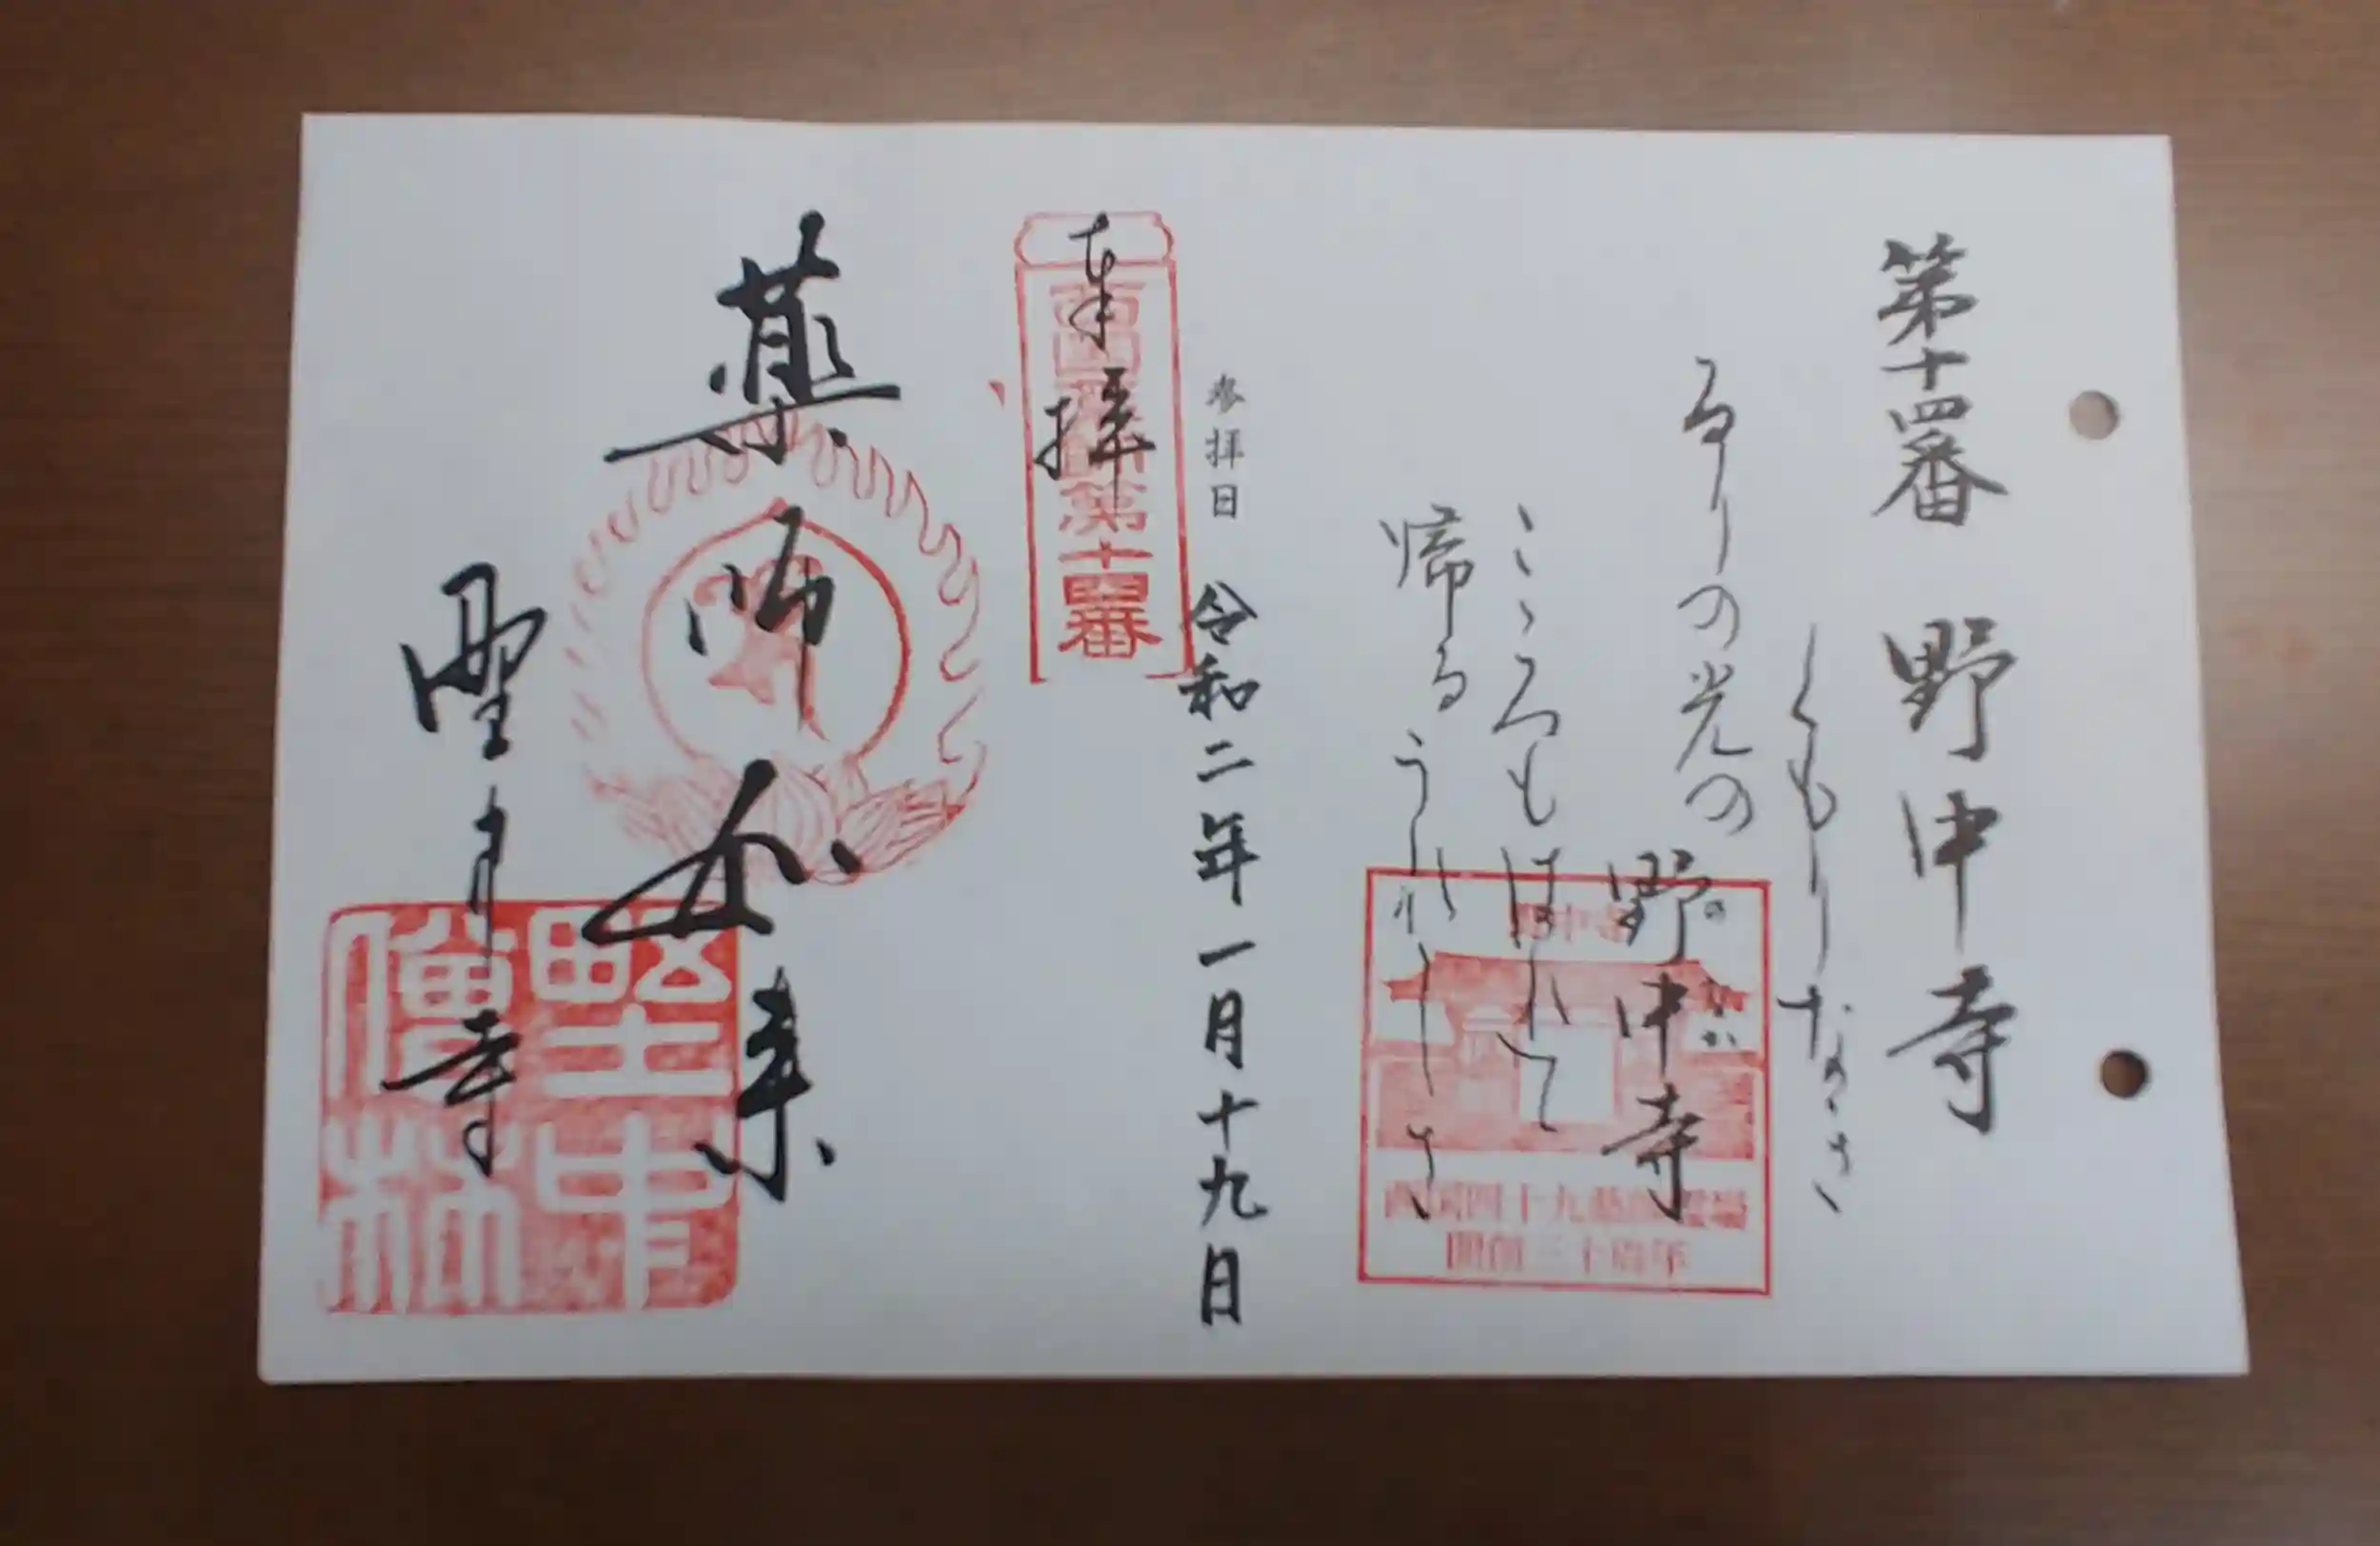 第十四番 野中寺
くもりなき
る りの光の
野中寺
のなか
こゝろもはれて
帰るうれしさ
野中寺
西国四十九薬師霊場
開創三十周年
参拝日 令和二年一月十九日
奉拝
西国薬師第十四番
薬師如来
野中寺
野中
僧林